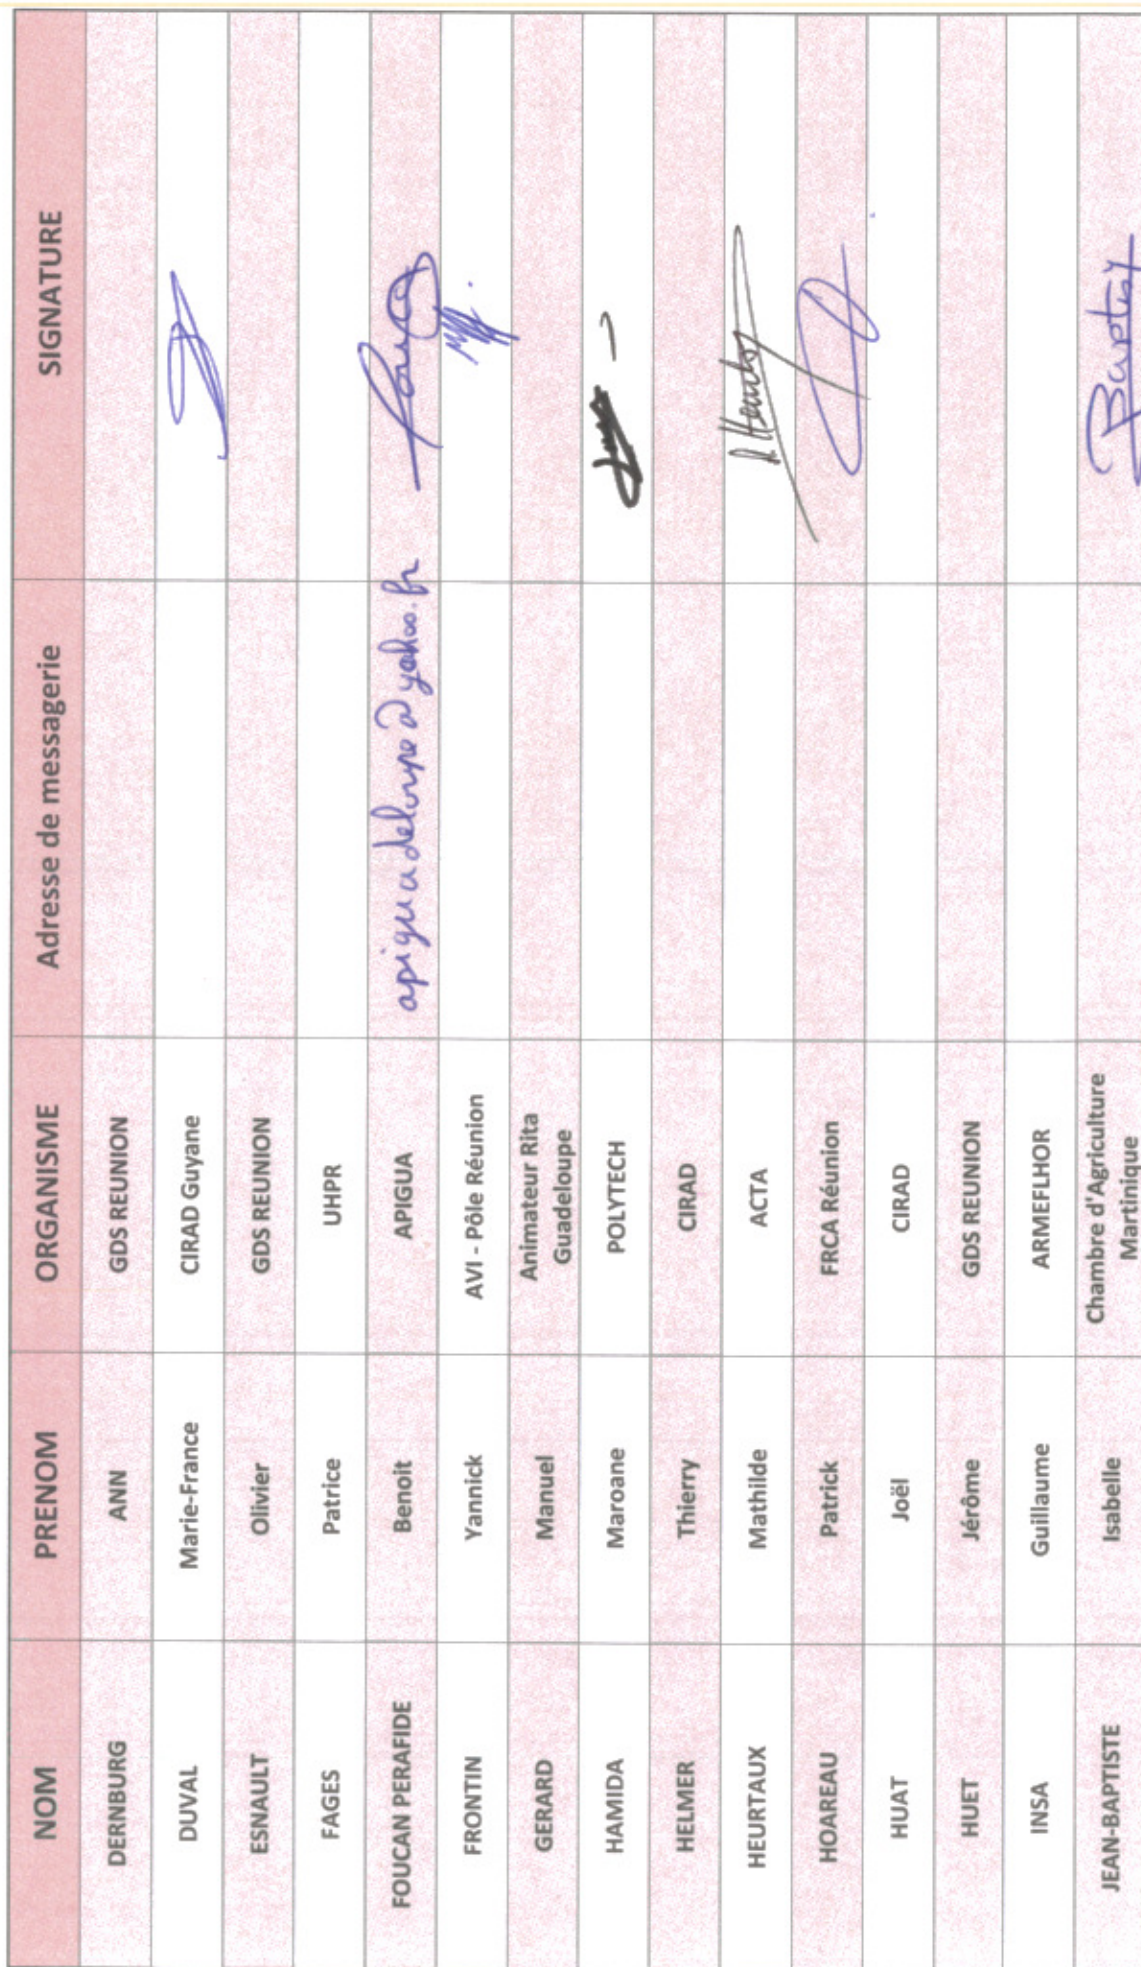 NOM PRENOM ORGANISME Adresse de messagerie SIGNATURE
DERNBURG ANN GDS REUNION
DUVAL Marie-France CIRAD Guyane
ESNAULT Olivier GDS REUNION
FAGES Patrice UHPR
FOUCAN PERAFIDE Benoit APIGUA apiguadeloupe@yahoo.fr
FRONTIN Yannick AVI - Pôle Réunion
GERARD Manuel Animateur Rita
Guadeloupe
HAMIDA Maroane POLYTECH
HELMER Thierry CIRAD
HEURTAUX Mathilde ACTA
HOAREAU Patrick FRCA Réunion
HUAT Joël CIRAD
HUET Jérôme GDS REUNION
INSA Guillaume ARMEFLHOR
JEAN-BAPTISTE Isabelle Chambre d'Agriculture
Martinique